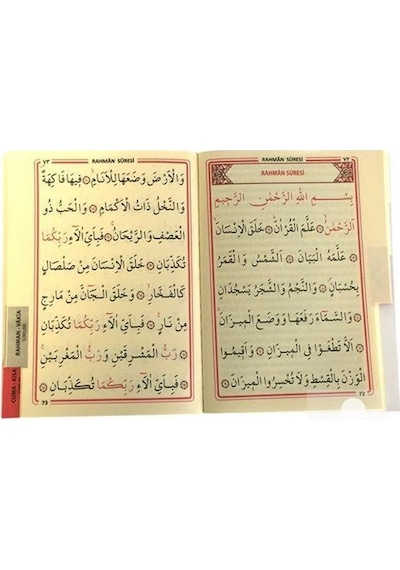 ٧٢
RAHMÂN SÛRESİ
RAHMÂN SÛRESİ
بِسْمِ اللهِ الرَّحْمٰنِ الرَّحِيمِ
اَلرَّحْمٰنُۙ ۞ عَلَّمَ الْقُرْاٰنَۜ ۞ خَلَقَ الْاِنْسَانَۙ ۞
عَلَّمَهُ الْبَيَانَ ۞ اَلشَّمْسُ وَ الْقَمَرُ
بِحُسْبَانٍۖ ۞ وَ النَّجْمُ وَ الشَّجَرُ يَسْجُدَانِ
۞ وَ السَّمَٓاءَ رَفَعَهَا وَ وَضَعَ الْم۪يزَانَۙ
۞ اَلَّا تَطْغَوْا فِي الْم۪يزَانِ ۞ وَ اَق۪يمُوا
الْوَزْنَ بِالْقِسْطِ وَ لَا تُخْسِرُوا الْم۪يزَانَ
72
٧٣
RAHMÂN SÛRESİ
وَ الْاَرْضَ وَضَعَهَا لِلْاَنَامِۙ ۞ ف۪يهَا فَاكِهَةٌۙ
وَ النَّخْلُ ذَاتُ الْاَكْمَامِۖ ۞ وَ الْحَبُّ ذُو
الْعَصْفِ وَ الرَّيْحَانُۚ ۞ فَبِاَيِّ اٰلَٓاءِ رَبِّكُمَا
تُكَذِّبَانِ ۞ خَلَقَ الْاِنْسَانَ مِنْ صَلْصَالٍ
كَالْفَخَّارِۙ ۞ وَ خَلَقَ الْجَٓانَّ مِنْ مَارِجٍ
مِنْ نَارٍۚ ۞ فَبِاَيِّ اٰلَٓاءِ رَبِّكُمَا تُكَذِّبَانِ
۞ رَبُّ الْمَشْرِقَيْنِ وَ رَبُّ الْمَغْرِبَيْنِۚ ۞
۞ فَبِاَيِّ اٰلَٓاءِ رَبِّكُمَا تُكَذِّبَانِ ۞
73
RAHMAN - VAKIA